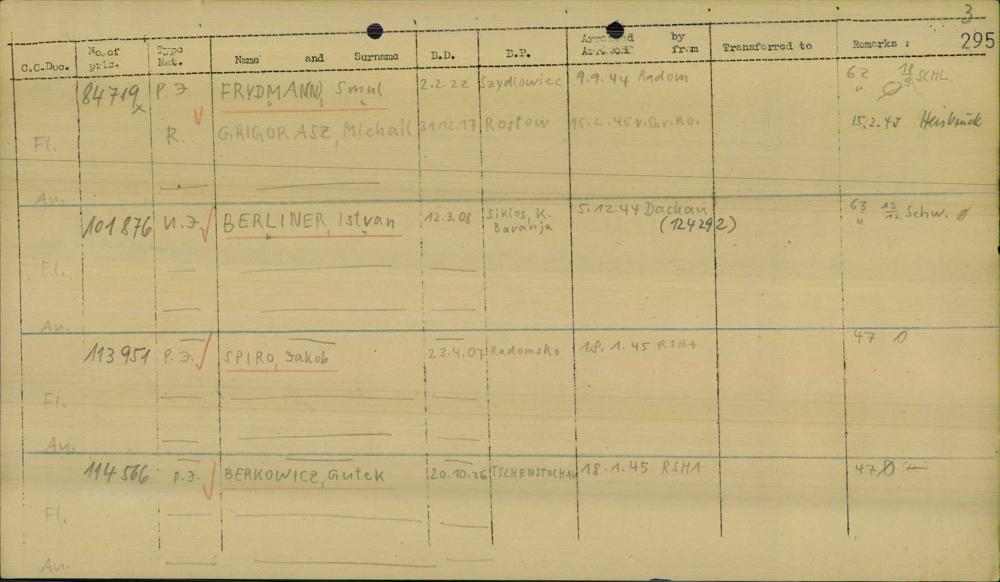 3
295
C.C.Doc.
No. of pris.
Type Nat.
Name and Surname
B.D.
B.P.
Arrived by
Arrived from
Transferred to
Remarks :
84719 P.J. FRYDMANN, Smul 2.2.22 Szydlowiec 9.9.44 Radom 62 18/9 SCHL.
Fl. R. GRIGORASZ, Michail 31.12.17 Rostow 15.2.45 v.Gr.Ro. 15.2.45
An.
101876 U.J. BERLINER, Istvan 12.3.08 Siklos, K. Baranja 5.12.44 Dachau (124292) 63 13/12 Schw.
Fl.
An.
113951 P.J. SPIRO, Jakob 23.4.07 Radomsko 18.1.45 RSHA 47
Fl.
An.
114566 P.J. BERKOWICZ, Gutek 20.10.26 TSCHENSTOCHAU 18.1.45 RSHA 47
Fl.
An.